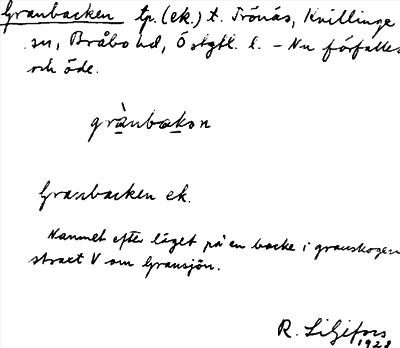 Granbacken tp. (ek.) t. Trönås, Kvillinge
sn, Bråbo hd, Östgtl. l. – Nu förfallet
och öde.
grànbakon
Granbacken ek.
Namnet efter läget på en backe i granskogen
strax V om Gransjön.
R. Liljefors
1928